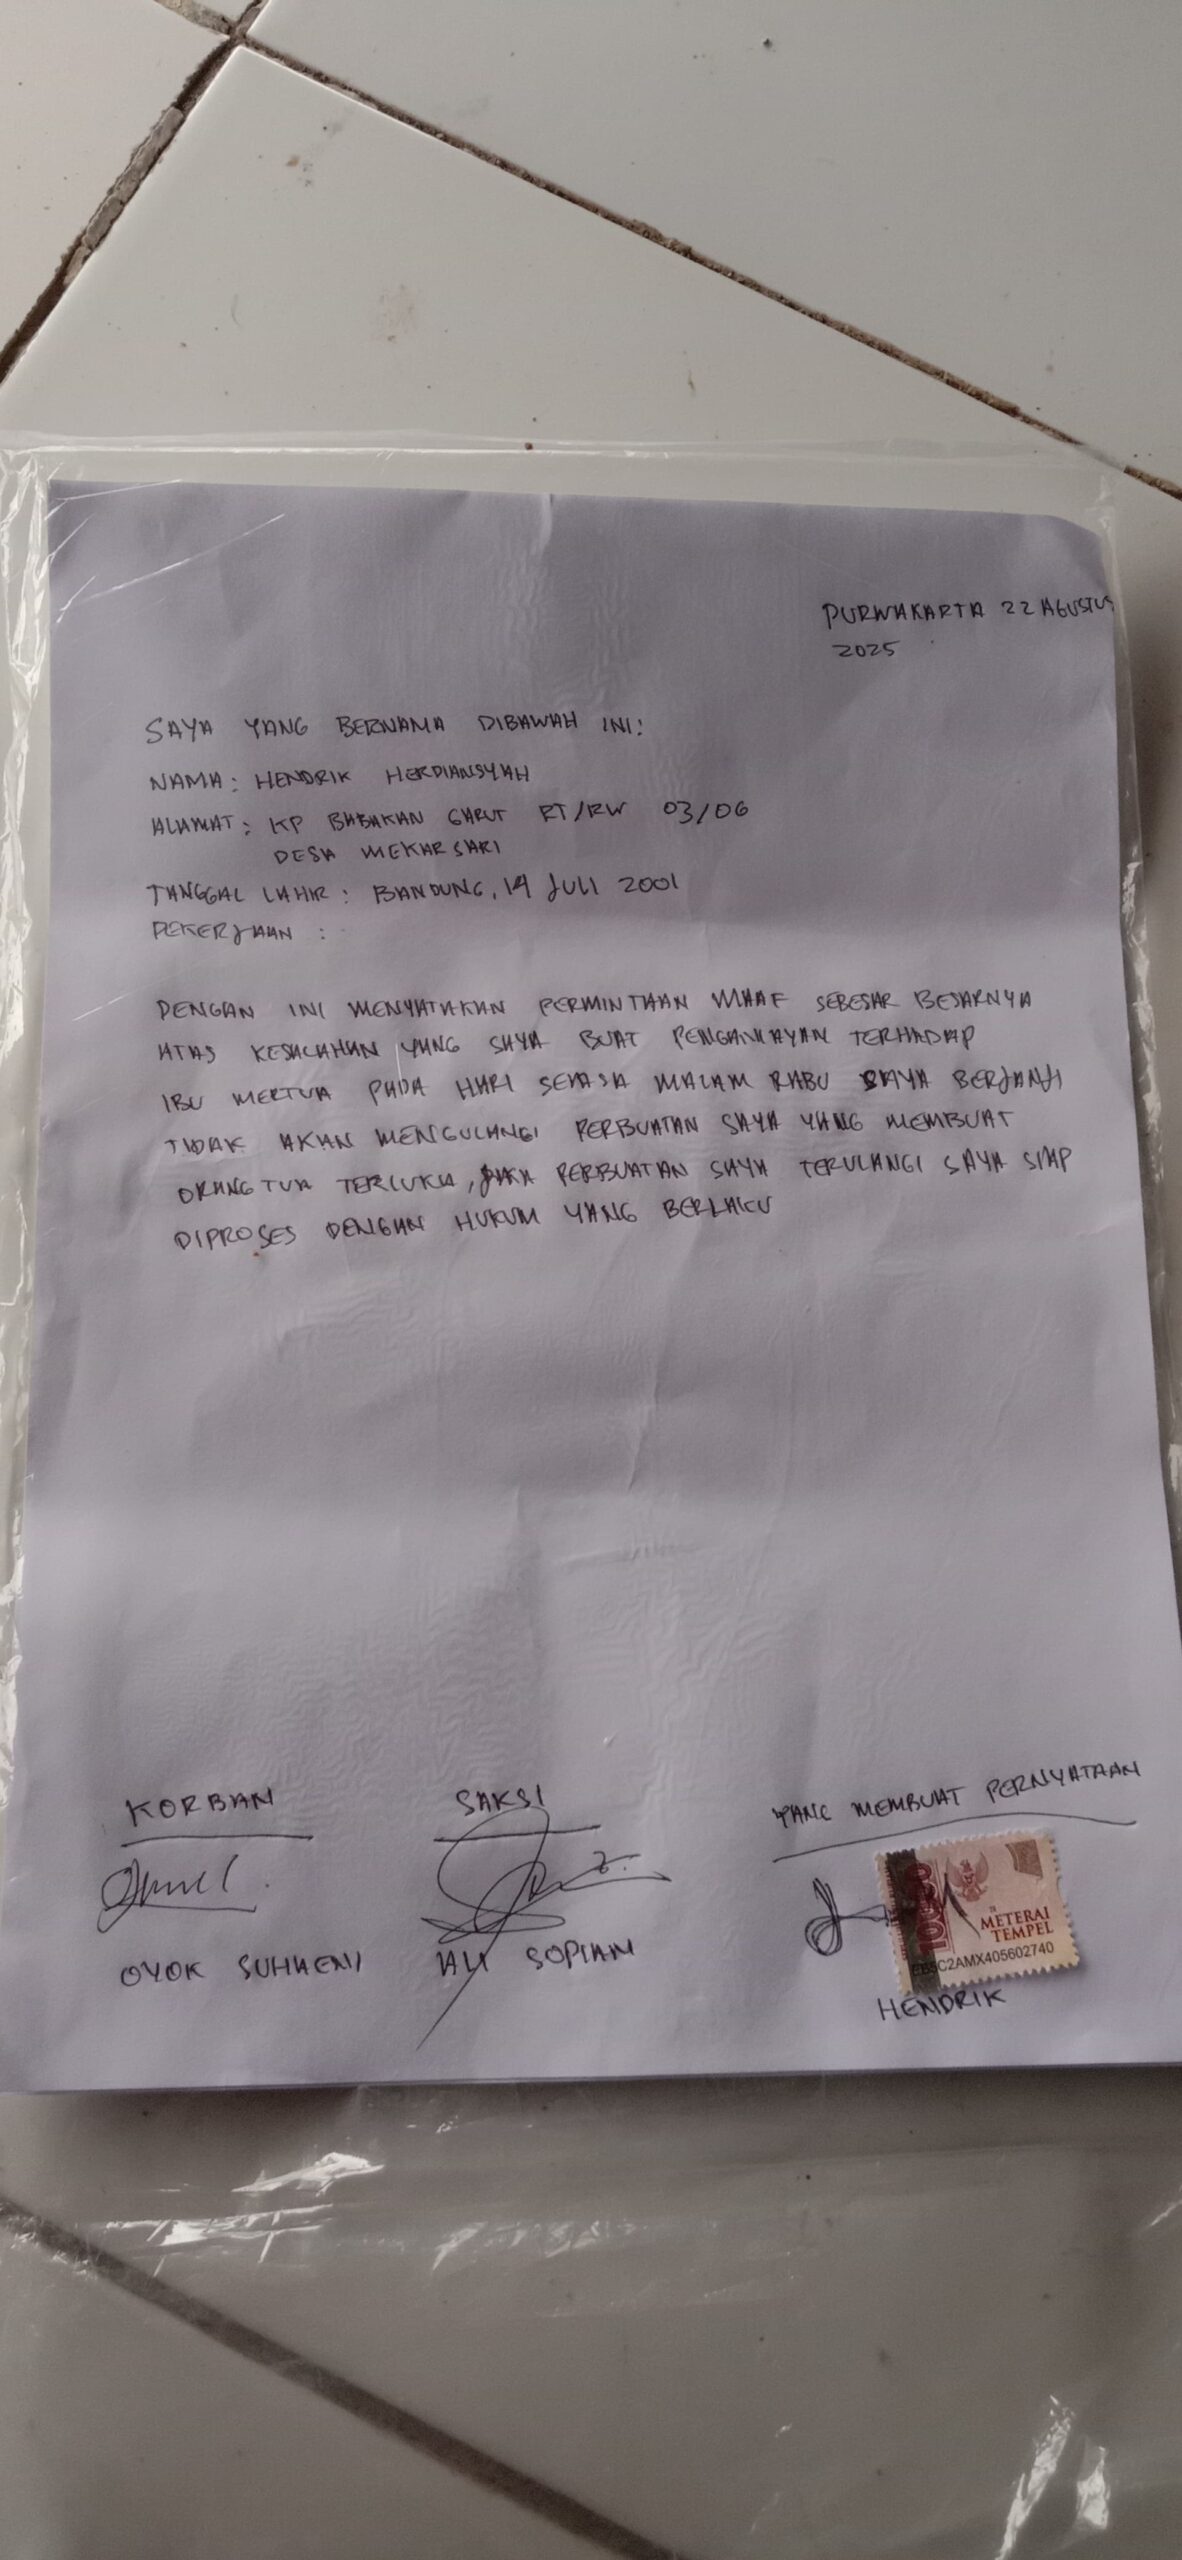 PURWAKARTA 22 AGUSTUS
2025
SAYA YANG BERNAMA DIBAWAH INI:
NAMA: HENDRIK HERDIANSYAH
ALAMAT: KP BABAKAN GARUT RT/RW 03/06
DESA MEKARSARI
TANGGAL LAHIR: BANDUNG, 14 JULI 2001
PEKERJAAN :
DENGAN INI MENYATAKAN PERMINTAAN MAAF SEBESAR BESARNYA
ATAS KESALAHAN YANG SAYA BUAT PENGANIAYAN TERHADAP
IBU MERTUA PADA HARI SELASA MALAM RABU SAYA BERJANJI
TIDAK AKAN MENGULANGI PERBUATAN SAYA YANG MEMBUAT
ORANG TUA TERLUKA, JIKA PERBUATAN SAYA TERULANGI SAYA SIAP
DIPROSES DENGAN HUKUM YANG BERLAKU
KORBAN SAKSI YANG MEMBUAT PERNYATAAN
10000
METERAI
TEMPEL
C2AMX405602740
OYOK SUHAENI ALI SOPIAN HENDRIK